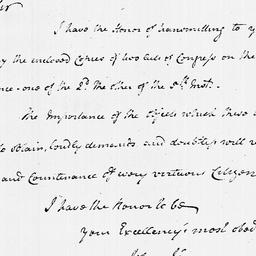 Sir
I have the Honor of transmitting to y
the enclosed Copies of two Acts of Congress on the
one of the 2d the other of the 9th Inst.
The Importance of the Objects which these
to obtain, loudly demands and doubtless will re
and Countenance of every virtuous Citizen
I have the Honor to be
your Excellency's most obed